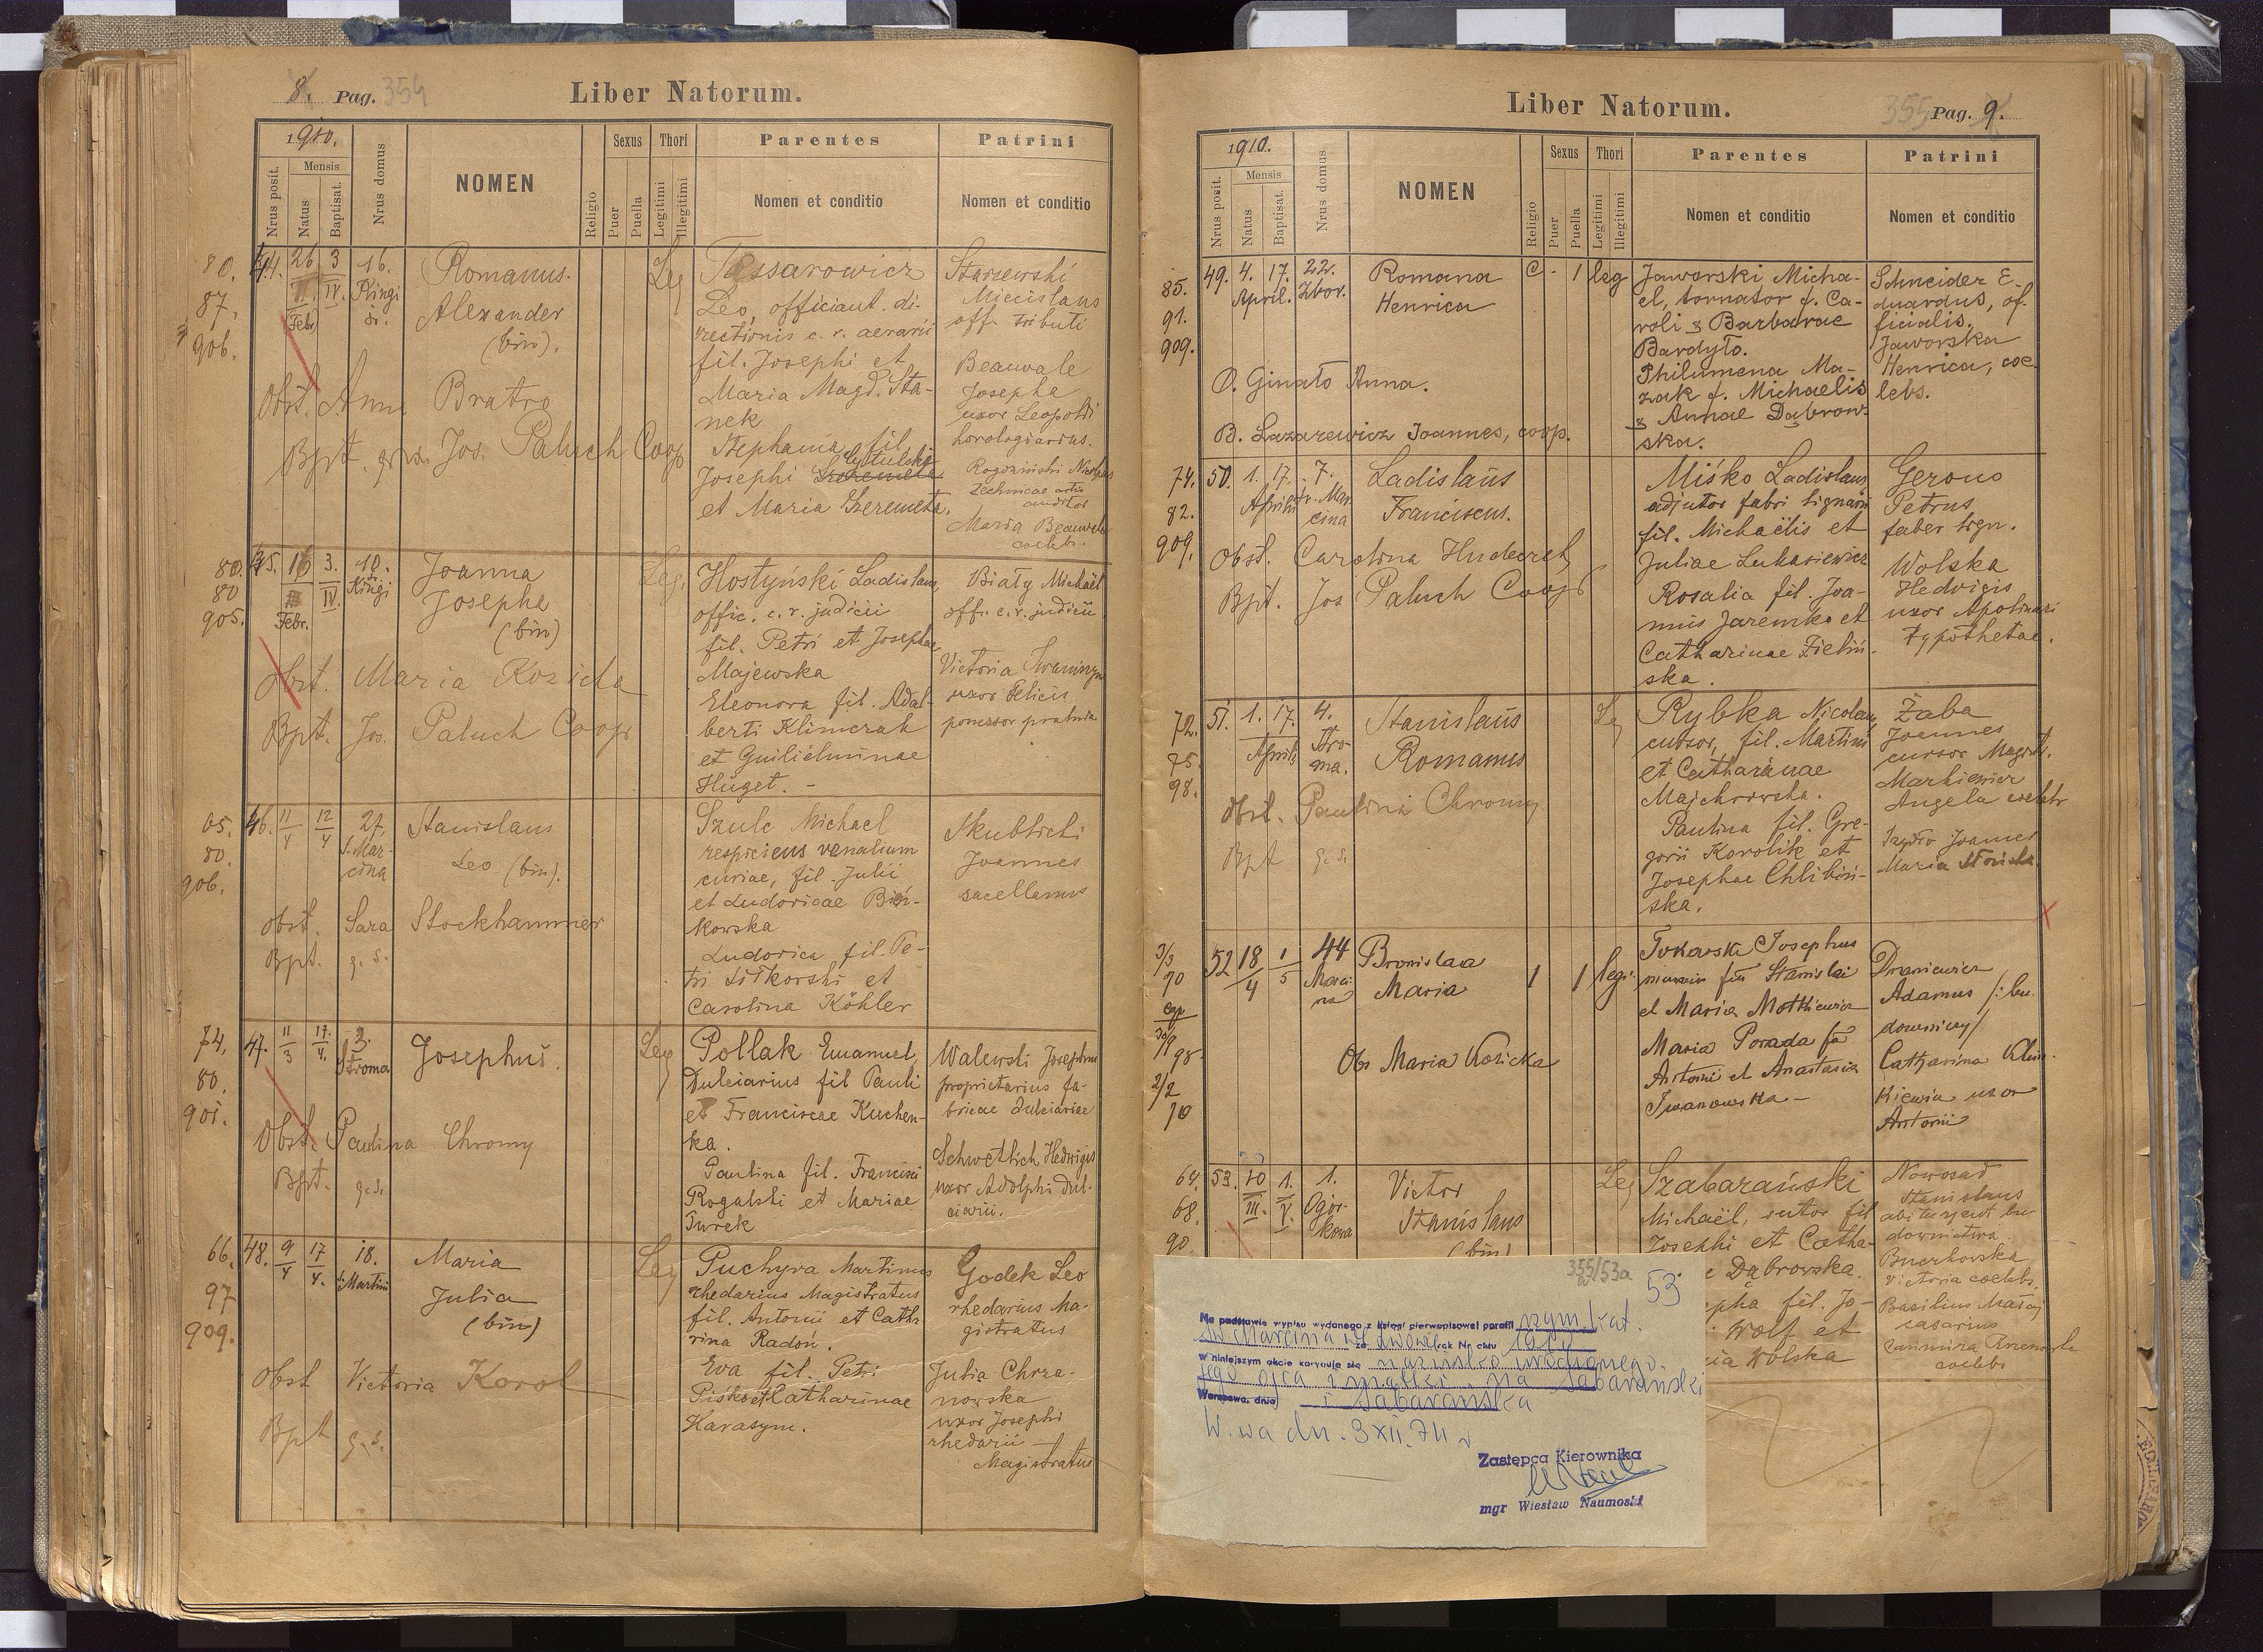 8. Pag. 354
Liber Natorum.
1910.
Nrus posit.
Mensis
Natus
Baptisat.
Nrus domus
NOMEN
Religio
Sexus
Puer
Puella
Thori
Legitimi
Illegitimi
Parentes
Nomen et conditio
Patrini
Nomen et conditio
80.
87.
906.
44. 26 3 16.
II. IV. Kingi
Febr.
Romanus
Alexander
(bin).
Leg
Tessarowicz
Leo, officiant. di-
rectionis c. r. aerarii
fil. Josephi et
Maria Magd. Sta-
nek
Stephania fil.
Josephi
et Maria Szeremeta.
Starzewski
Miecislaus
off. tributi
Beauvale
Josepha
uxor Leopoldi
horologiarius.
Rogoziński Nicolaus
technicae artis
auditor
Maria Beauvale
coelebs.
Obst. Anna Bratro
Bpt. Jos. Paluch Coop
80.
80
905.
45. 16 3. 10.
III IV. Kingi
Febr.
Joanna
Josepha
(bin)
Leg.
Hostyński Ladislaus,
offic. c. r. judicii
fil. Petri et Josephae
Majewska
Eleonora fil. Adal-
berti Klimczak
et Guilielminae
Huget. -
Biały Michaël
offc. c. r. judicii
Victoria
uxor Felicis
Obst. Maria Kozicka
Bpt. Jos. Paluch Coop
05.
80.
906.
46. 11/4 12/4 27.
S. Mar-
cina
Stanislaus
Leo (bin).
Szulc Michael
respiciens venalium
curiae, fil. Julii
et Ludovicae Bień-
kowska
Ludovica fil. Pe-
tri Litkorski et
Carolina Köhler
Skublicki
Joannes
sacellanus
Obst. Sara Stockhammer
Bpt. q. s.
74.
80.
901.
47. 11/3 17./4. 3.
Stroma
Josephus.
Leg
Pollak Emanuel,
Dulciarius fil Pauli
et Franciscae Kuchen-
ka.
Paulina fil. Francisci
Rogalski et Mariae
Turek
Walewski Josephus
proprietarius fa-
bricae dulciariae
Schwetlich Hedwigis
uxor Adolphi dul-
ciarii.
Obst. Paulina Chromy
Bpt. q. s.
66.
97
909.
48. 9/4 17/4. 18.
S. Martini
Maria
Julia
(bin)
Leg
Puchyra Martinus
rhedarius Magistratus
fil. Antonii et Catha
rina Radoń.
Eva fil. Petri
Pisko et Catharinae
Harasym.
Godek Leo
rhedarius Ma-
gistratus
Julia Chrza-
nowska
uxor Josephi
rhedarii
Magistratus
Obst Victoria Korol
Bpt q. s.
Liber Natorum.
355 Pag. 9.
1910.
Nrus posit.
Mensis
Natus
Baptisat.
Nrus domus
NOMEN
Religio
Sexus
Puer
Puella
Thori
Legitimi
Illegitimi
Parentes
Nomen et conditio
Patrini
Nomen et conditio
85.
91.
909.
49. 4. 17. 22.
April. Zbor.
Romana
Henrica
C - 1 leg
Jaworski Micha-
el, tornator f. Ca-
roli & Barbarae
Bardyło.
Philumena Ma-
zak f. Michaelis
& Annae Dąbrow-
ska.
Schneider E-
duardus, of-
ficialis.
Jaworska
Henrica, coe-
lebs.
O. Ginało Anna.
B. Lazarewicz Joannes, coop.
74.
82.
909.
50. 1. 17. 7.
Aprili Mar
cina
Ladislaus
Franciscus.
Miśko Ladislaus
adjutor fabri lignarii
fil. Michaëlis et
Juliae Lukasiewicz
Rosalia fil. Joa-
nnis Jaremko et
Catharinae Zieliń-
ska.
Gerono
Petrus
faber lign.
Wolska
Hedvigis
uxor Apolinari
typothetae.
Obst. Carolina Huderek
Bpt. Jos Paluch Coop
72.
75.
98.
51. 1. 17. 4.
Aprili Stro-
ma.
Stanislaus
Romanus
Leg
Rybka Nicolaus,
cursor, fil. Martini
et Catharinae
Majchrowska.
Paulina fil. Gre-
gorii Korolik et
Josephae Chlibiń-
ska.
Żaba
Joannes
cursor Magistr.
Markiewicz
Angela coelebs
Joannes
Maria
Obst. Paulina Chromy
Bpt q. s.
3/3
70
98.
2/2
70
52 18/4 1/5 44
Marci
na
Bronislaa
Maria
1 1 legi.
Tokarski Josephus
fil Stanislai
et Maria Motkiewicz
Maria Porada fa
Antonii et Anastasia
Iwanowska -
Draniewicz
Adamus /: bu
downiczy/
Catharina Klim-
kiewicz uxor
Antonii
Obs Maria Kozicka
64.
68.
90.
53. 20 1. 1.
III. V. Ogór-
kowa
Victor
Stanislaus
(bin)
Leg
Szabarański
Michaël, sutor fil
Josephi et Catha-
e Dąbrowska.
epha fil. Jo-
Wolf et
ia Wolska
Nowosad
Stanislaus
abiturient bu
downictwa
Bucrkowska
Victoria coelebs.
Basilius Masaj
caesarius
coelebs
355/53a
53
Na podstawie wypisu wydanego z księgi pierwopisowej parafii rzym. kat.
św. Marcina we Lwowie za rok Nr aktu
w niniejszym akcie koryguje się nazwisko urodzonego,
jego ojca i matki na Sabarański
Warszawa, dnia i Sabarańska
W-wa dn. 3 XII. 74 r
Zastępca Kierownika
mgr Wiesław Naumoski